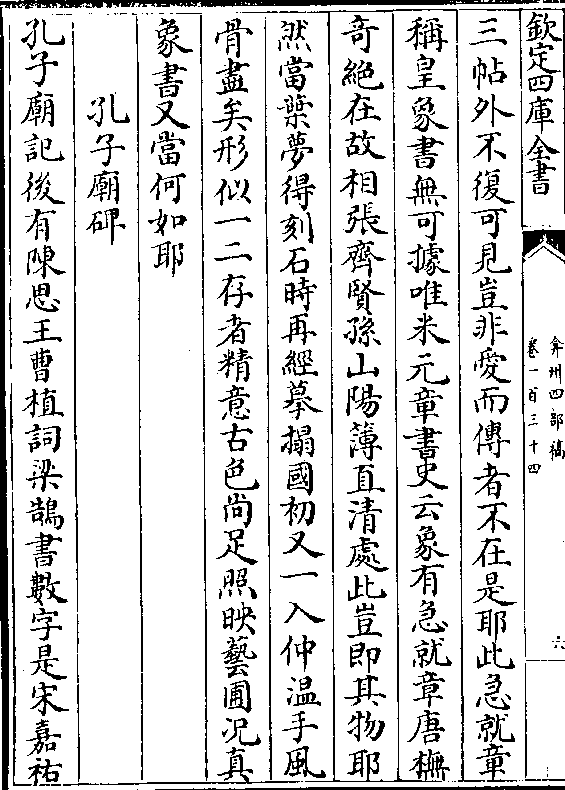 欽定四庫全書
弇州四部稿
卷一百三十四
六
三帖外不復可見豈非愛而傳者不在是耶此急就章
稱皇象書無可據唯米元章書史云象有急就章唐橅
奇絶在故相張齊賢孫山陽薄直清處此豈即其物耶
然當葉夢得刻石時再經摹搨國初又一入仲温手風
骨盡矣形似一二存者精意古色尚足照映藝圃况真
象書又當何如耶
孔子廟碑
孔子廟記後有陳思王曹植詞梁鵠書數字是宋嘉祐